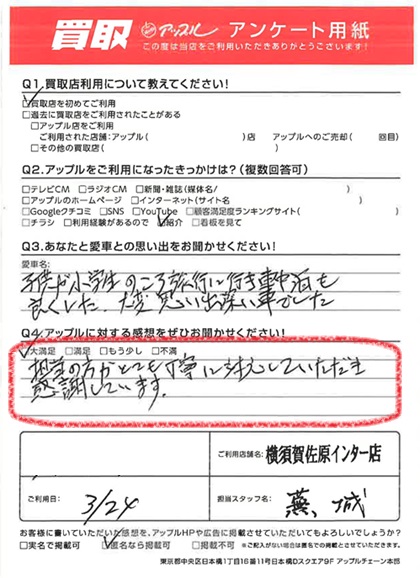 買取 アップル アンケート用紙
この度は当店をご利用いただきありがとうございます!
Q1.買取店利用について教えてください!
☑買取店を初めてご利用
□過去に買取店をご利用されたことがある
□アップル店をご利用
ご利用された店舗:アップル( )店 アップルへのご売却( 回目)
□その他の買取店( )
Q2.アップルをご利用になったきっかけは?(複数回答可)
□テレビCM □ラジオCM □新聞・雑誌(媒体名/ )
□アップルのホームページ □インターネット(サイト名 )
□Googleクチコミ □SNS □YouTube □顧客満足度ランキングサイト( )
□チラシ □利用経験があるので ☑紹介 □看板を見て
Q3.あなたと愛車との思い出をお聞かせください!
愛車名:
子供が小学生のころ旅行に行き車中泊も
良くした。大変思い出深い車でした
Q4.アップルに対する感想をぜひお聞かせください!
☑大満足 □満足 □もう少し □不満
担当の方がとても丁寧に対応していただき
感謝しています。
ご利用店舗名: 横須賀佐原インター店
ご利用日: 3/24 担当スタッフ名: 城
お客様に書いていただいた感想を、アップルHPや広告に掲載させていただいてもよろしいでしょうか?
□実名で掲載可 ☑匿名なら掲載可 □掲載不可 ※ご記入がない場合は匿名での掲載とさせていただきます。
東京都中央区日本橋1丁目16番11号日本橋Dスクエア9F アップルチェーン本部